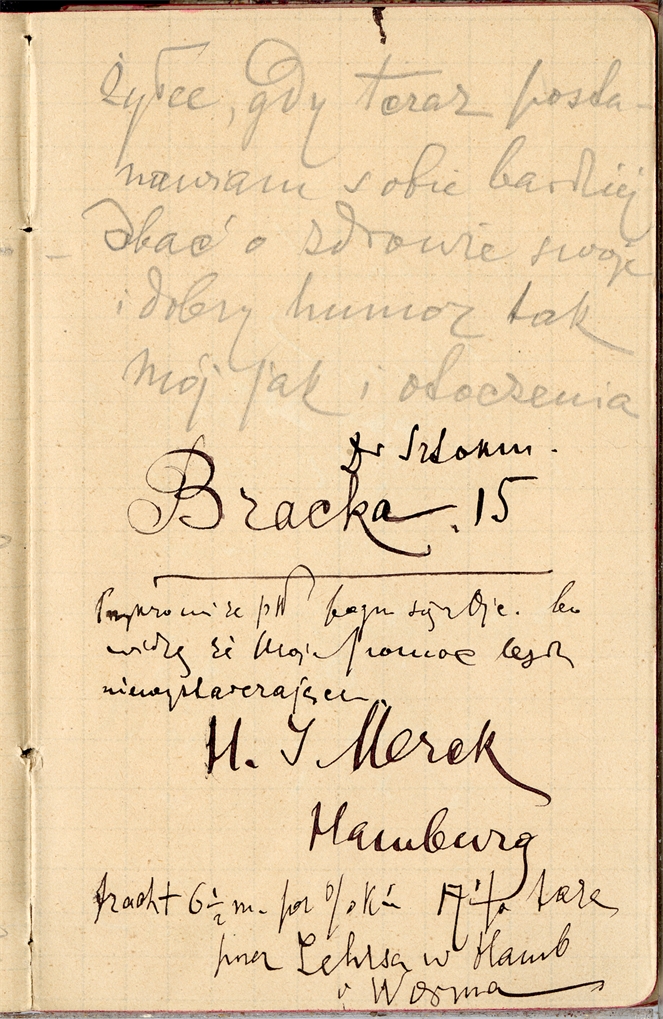 życe, gdy teraz posta-
nawiam sobie bardziej
dbać o zdrowie swoje
i dobry humor tak
mój jak i otoczenia
Dr
Bracka 15
Przykro mi że
widzę że moja pomoc będzie
niewystarczającą
H. J Merck
Hamburg
fracht 6 1/2 m. per % 
przez Lehrsa w Hamb
i Worma